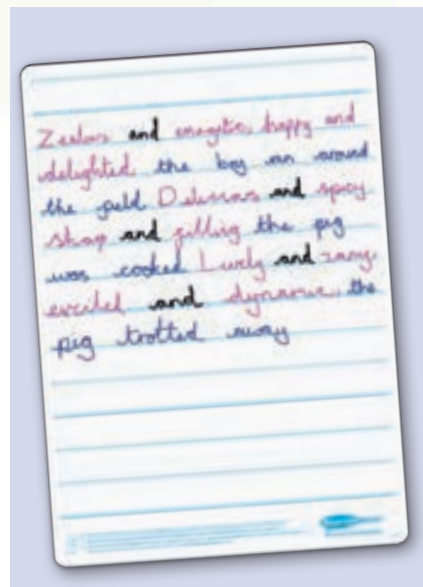 Zealous and energetic, happy and
delighted, the boy ran around
the field Delicious and spicy
sharp and filling the pig
was cooked Lively and zany,
excited and dynamic, the
pig trotted away